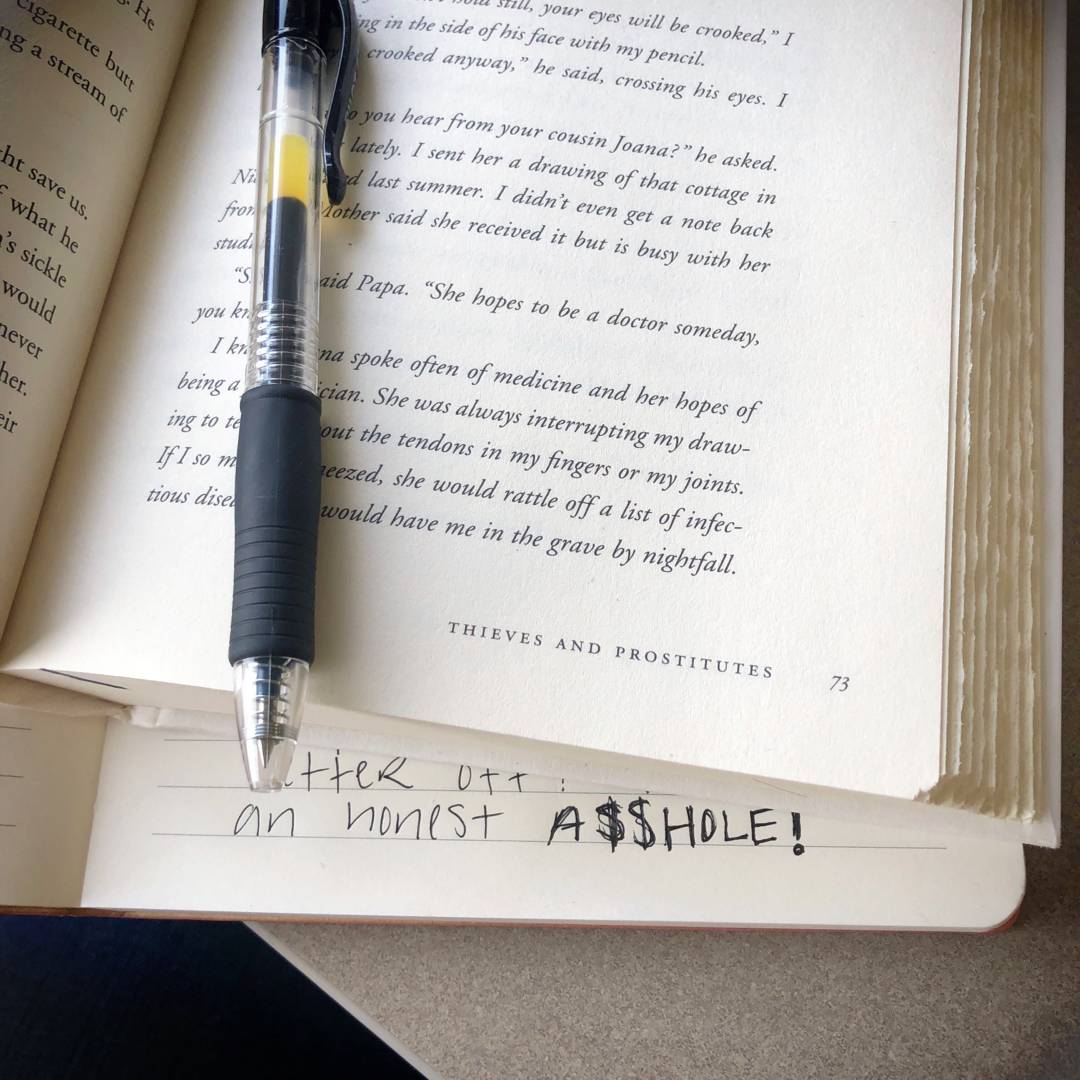 He
cigarette butt
ng a stream of
ht save us.
what he
's sickle
would
never
her.
eir
hold still, your eyes will be crooked,” I
ing in the side of his face with my pencil.
crooked anyway,” he said, crossing his eyes. I
o you hear from your cousin Joana?” he asked.
lately. I sent her a drawing of that cottage in
last summer. I didn’t even get a note back
Mother said she received it but is busy with her
aid Papa. “She hopes to be a doctor someday,
you
I na spoke often of medicine and her hopes of
being a ician. She was always interrupting my draw-
ing to out the tendons in my fingers or my joints.
If I so neezed, she would rattle off a list of infec-
tious would have me in the grave by nightfall.
THIEVES AND PROSTITUTES 73
off
an honest A$$HOLE!